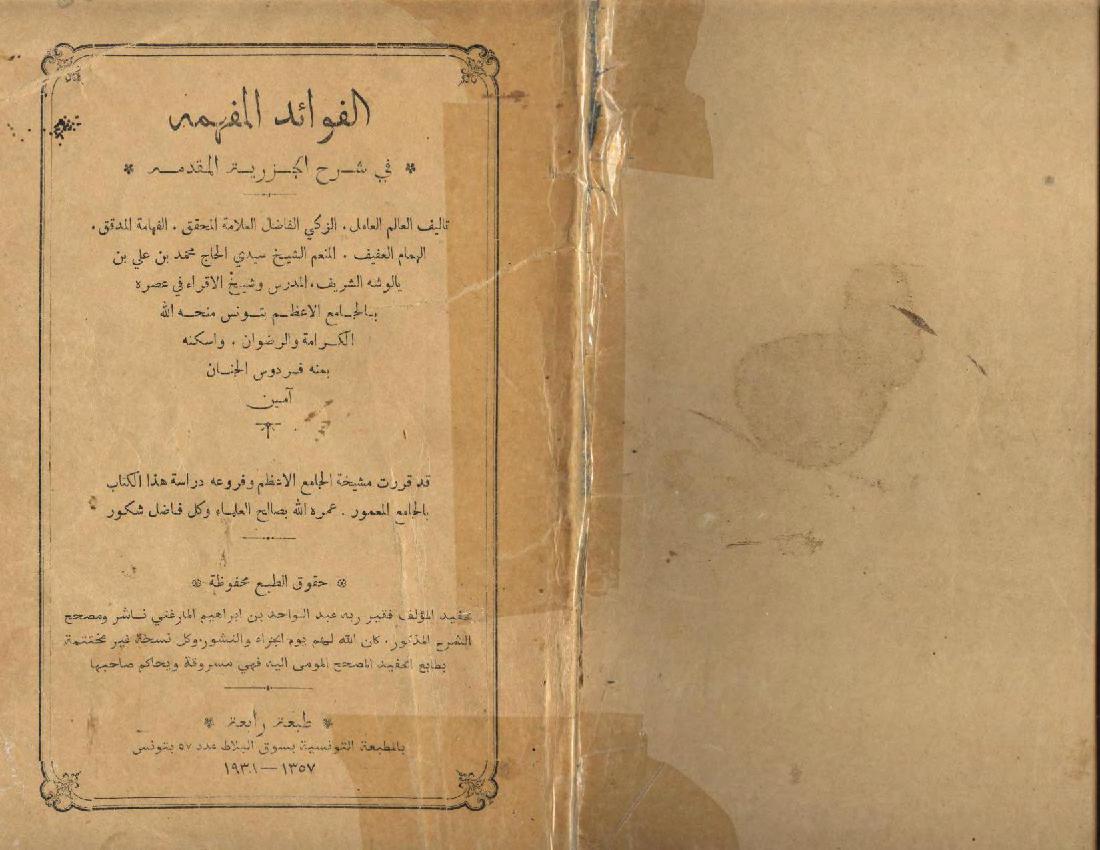 الفوائد المفهمه
في شرح الجزرية المقدمه
تاليف العالم العامل . الزكي الفاضل العلامة المحقق . الفهامة المدقق .
الهمام العفيف . المنعم الشيخ سيدي الحاج محمد بن علي بن
يالوشه الشريف . المدرس وشيخ الاقراء في عصره
بالجامع الاعظم بتونس منحه الله
الكرامة والرضوان . واسكنه
بمنه فردوس الجنان
آمين
قد قررت مشيخة الجامع الاعظم وفروعه دراسة هذا الكتاب
بالجامع المعمور . عمره الله بصالح العلماء وكل فاضل شكور
حقوق الطبع محفوظة
لحفيد المؤلف فقير ربه عبد الواحد بن ابراهيم المارغني ناشر ومصحح
الشرح المذكور . كان الله لهم يوم الجزاء والنشور وكل نسخة غير مختتمة
بطابع الحفيد المصحح المومى اليه فهي مسروقة ويحاكم صاحبها
طبعة رابعة
بالمطبعة التونسية بسوق البلاط عدد ٥٧ بتونس
١٣٥٧ — ١٩٣٨